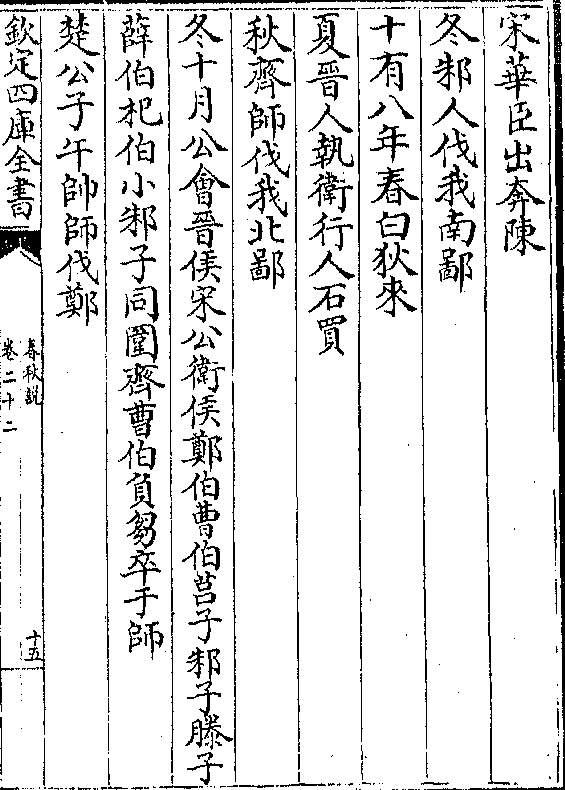 宋華臣出奔陳
冬邾人伐我南鄙
十有八年春白狄來
夏晉人執衛行人石買
秋齊師伐我北鄙
冬十月公會晉侯宋公衛侯鄭伯曹伯莒子邾子滕子
薛伯杞伯小邾子同圍齊曹伯負芻卒于師
楚公子午帥師伐鄭
欽定四庫全書
春秋說
卷二十二
十五